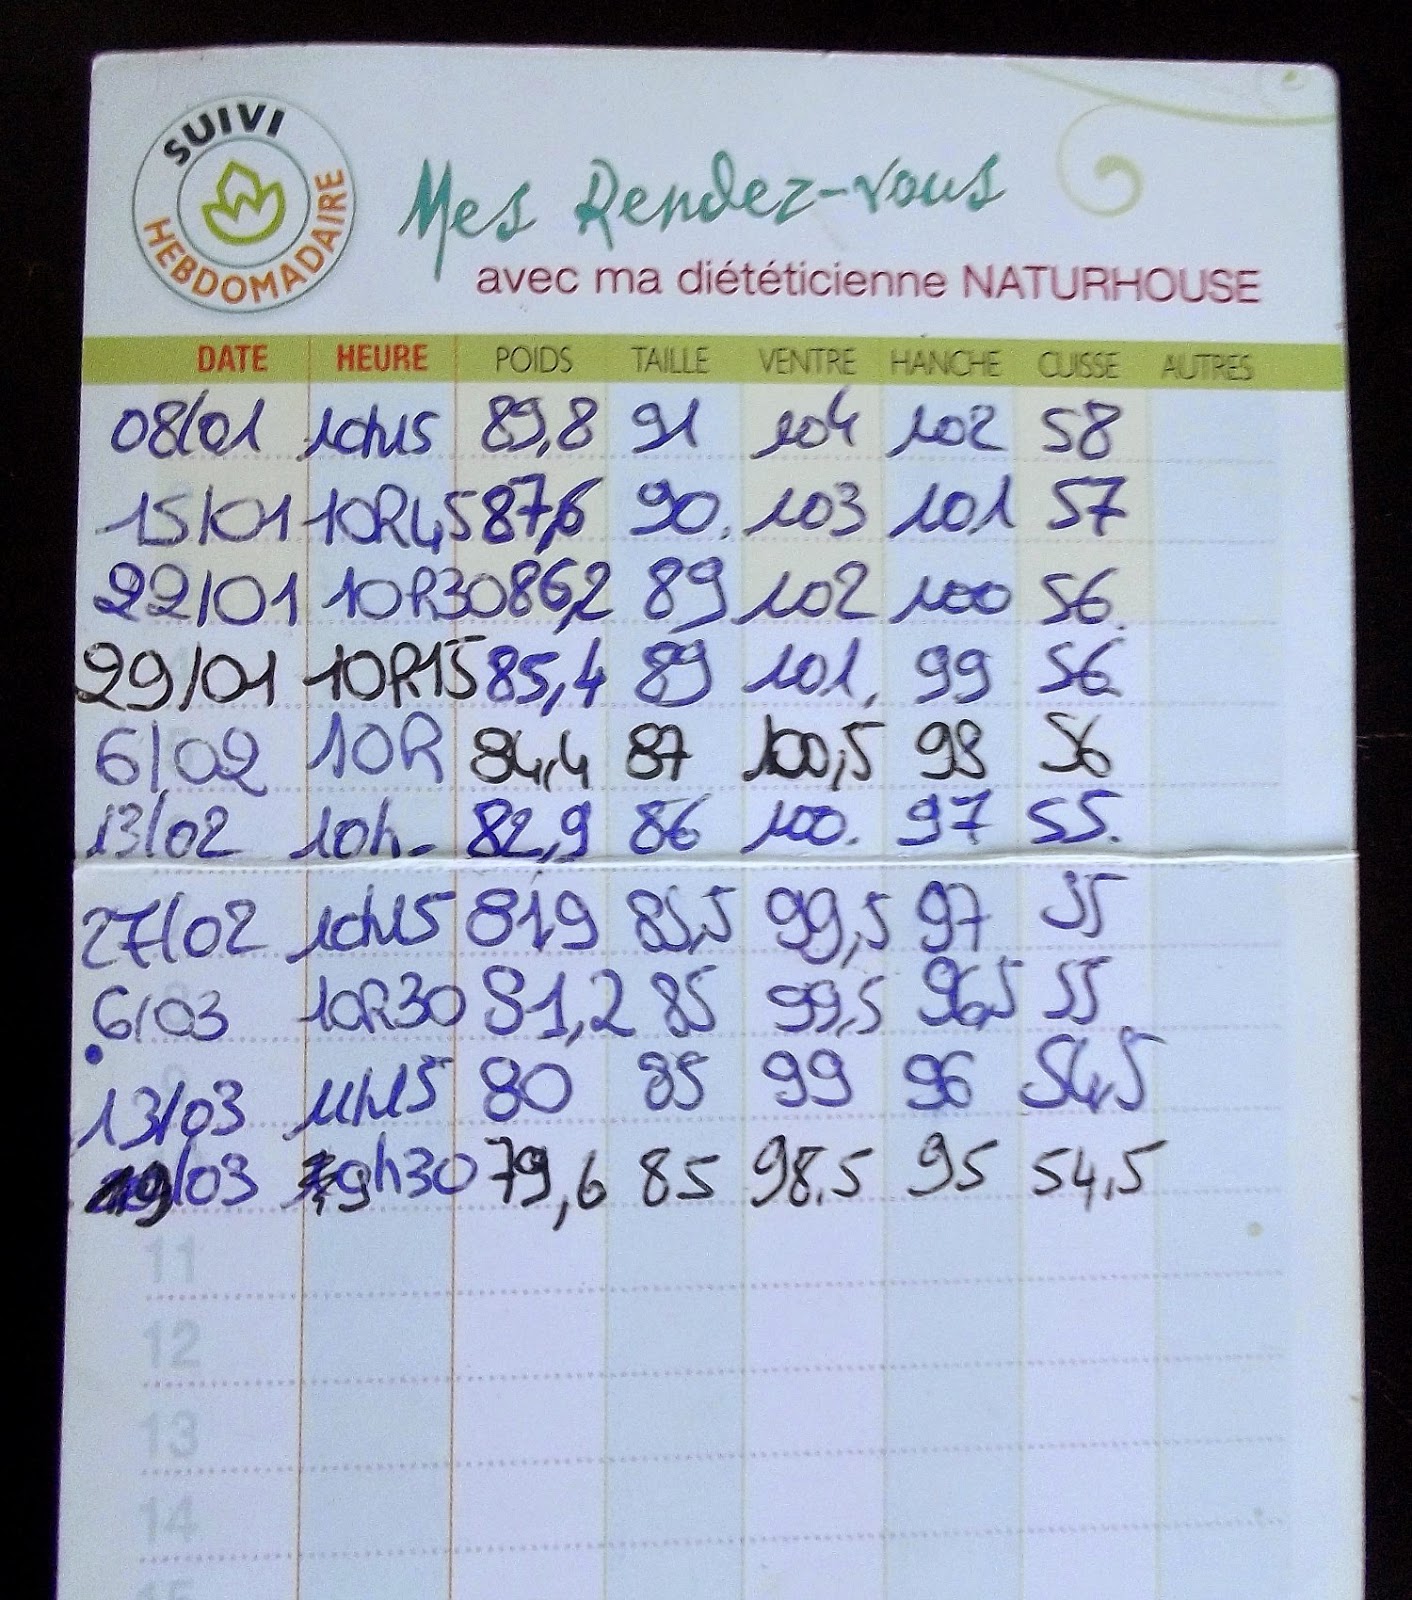 SUIVI HEBDOMADAIRE
Mes Rendez-vous
avec ma diététicienne NATURHOUSE
DATE HEURE POIDS TAILLE VENTRE HANCHE CUISSE AUTRES
08/01 10h15 89,8 91 104 102 58
15/01 10h45 87,6 90. 103 101 57
22/01 10h30 86,2 89 102 100 56.
29/01 10h15 85,4 89 101, 99 56
6/02 10h 84,4 87 100,5 98 56
13/02 10h- 82,9 86 100. 97 55.
27/02 10h15 81,9 85,5 99,5 97 55
6/03 10h30 81,2 85 99,5 96,5 55
13/03 11h15 80 85 99 96 54,5
19/03 9h30 79,6 85 98.5 95 54,5
11
12
13
14
15